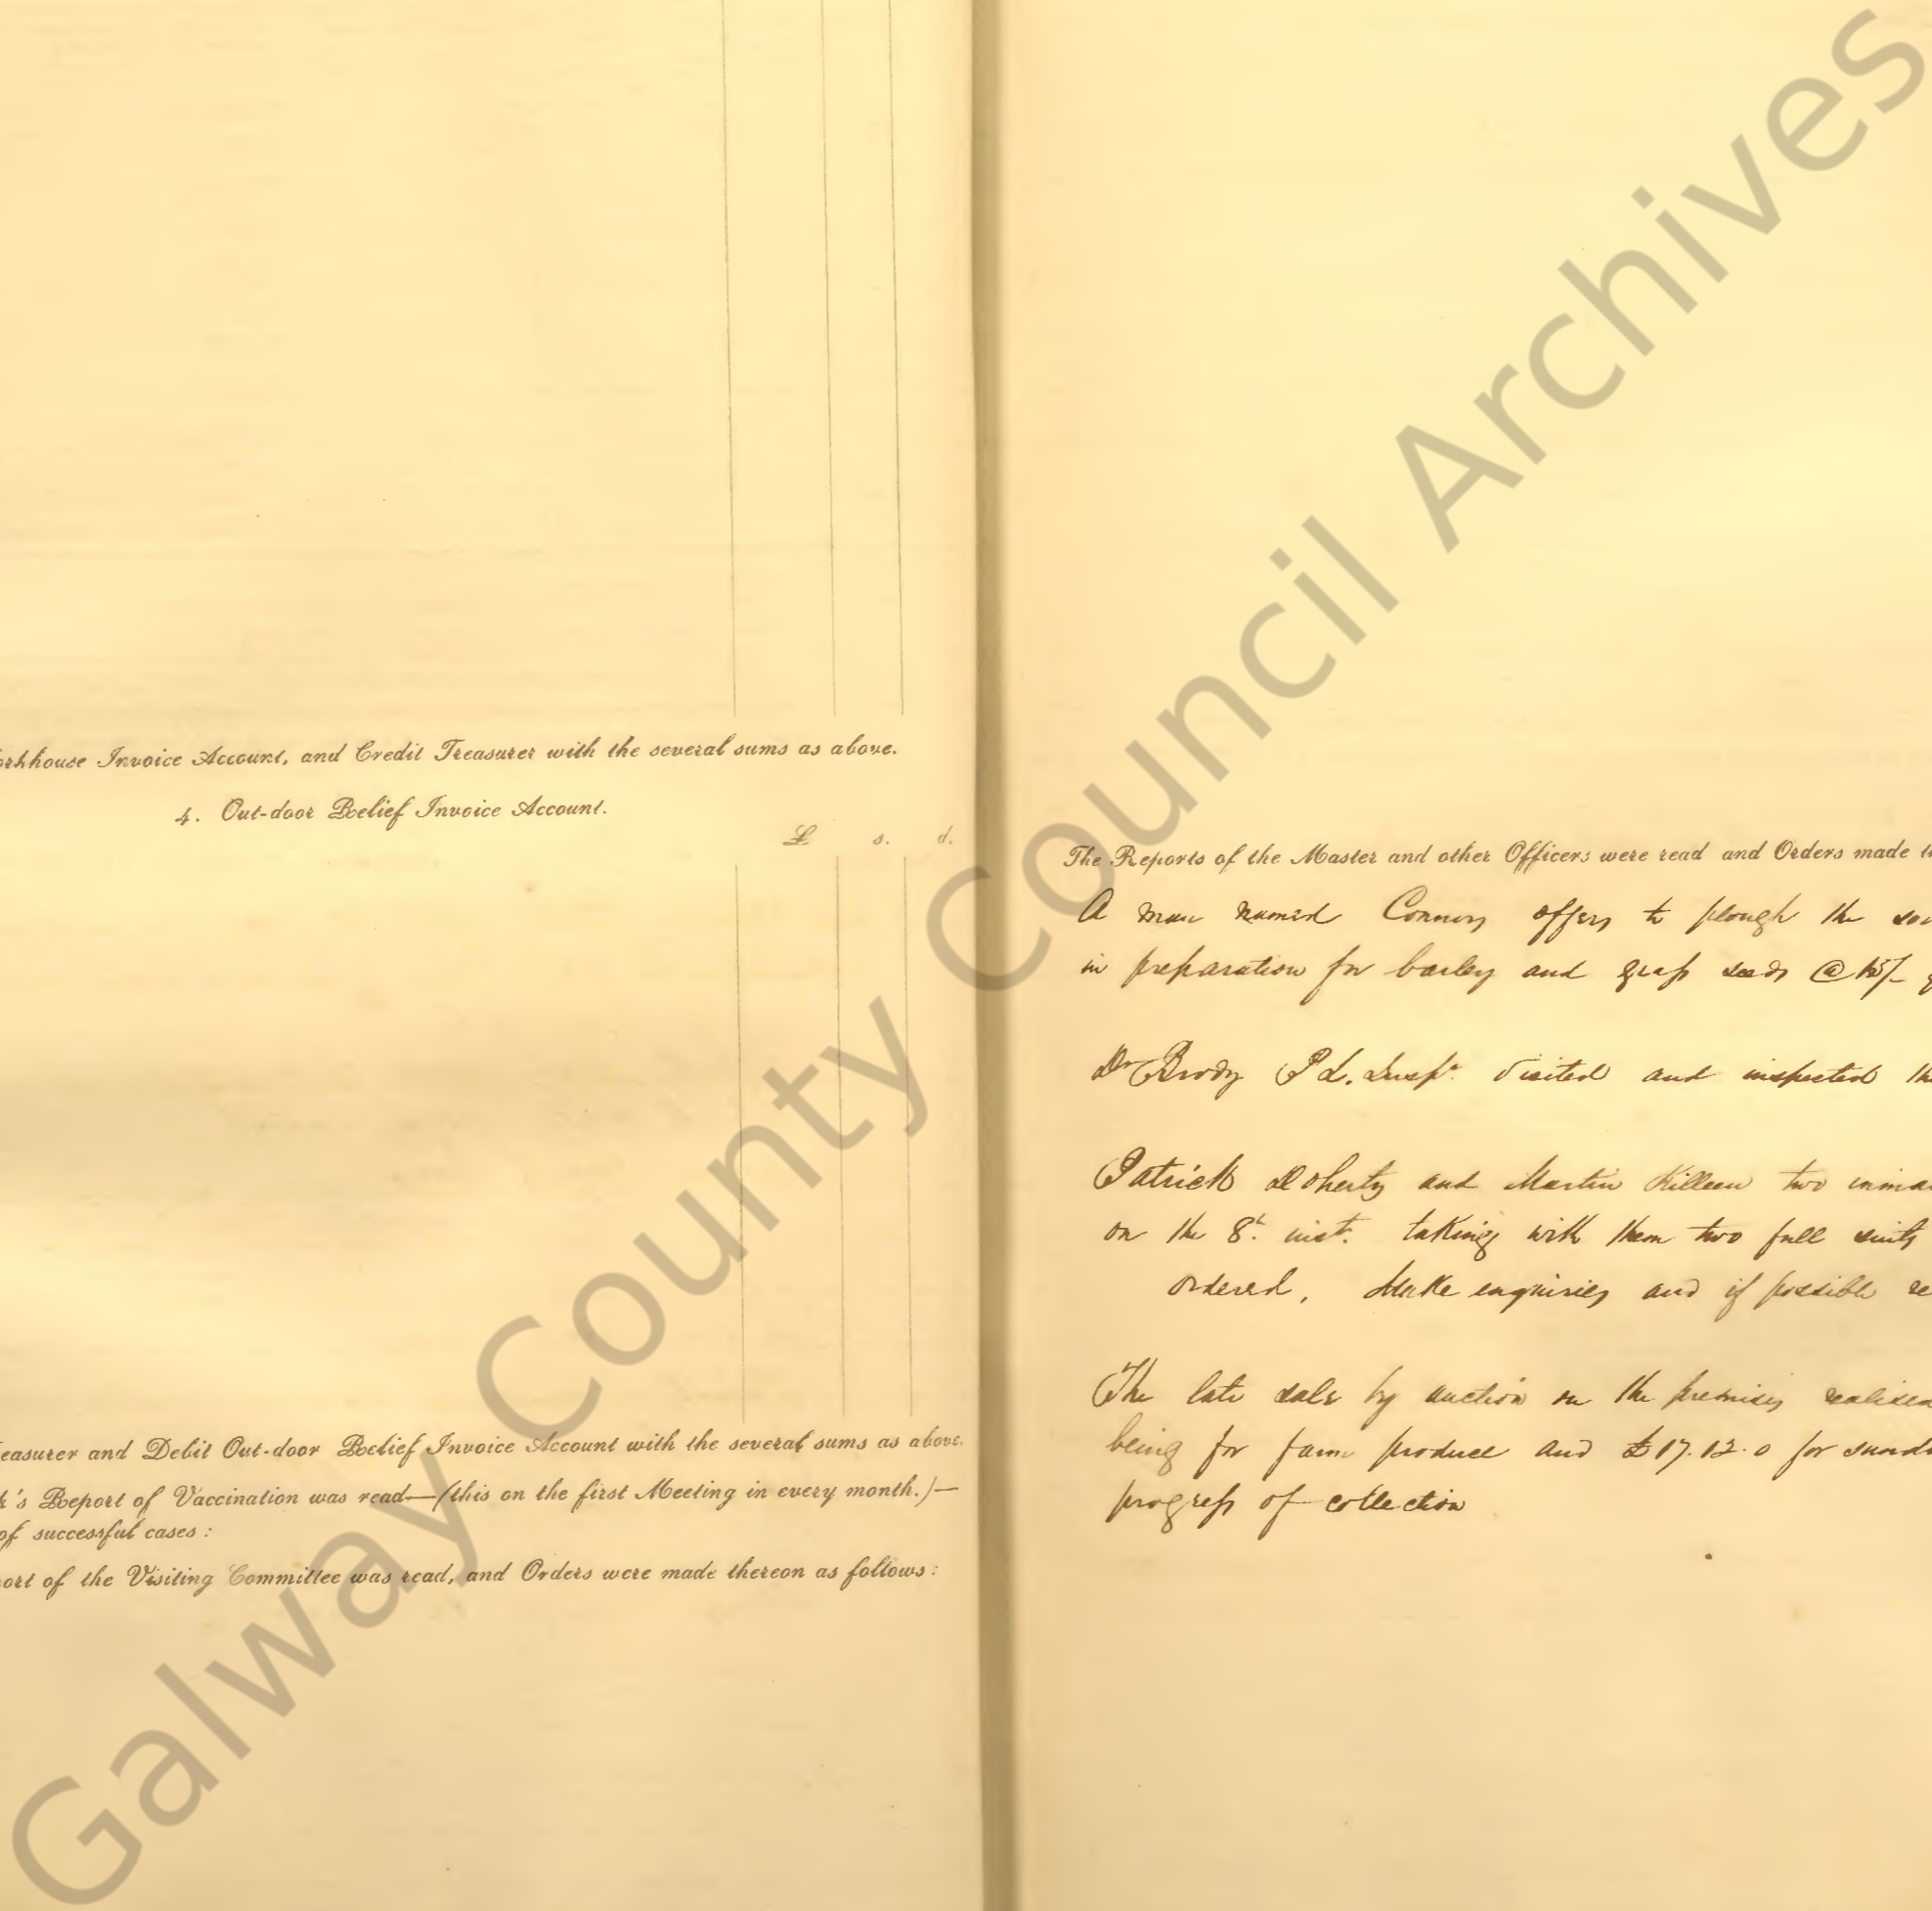 orkhouse Invoice Account, and Credit Treasurer with the several sums as above.
4. Out-door Relief Invoice Account.
£ s. d.
easurer and Debit Out-door Relief Invoice Account with the several sums as above.
k's Report of Vaccination was read—(this on the first Meeting in every month.)—
of successful cases :
ort of the Visiting Committee was read, and Orders were made thereon as follows :
The Reports of the Master and other Officers were read and Orders made th
A man named Connors offers to plough the
in preparation for barley and grass seeds @ 15/-
Dr Brody P L. Inspr. visited and inspected the
Patrick Doherty and Martin Killeen two inma
on the 8th inst. taking with them two full suits
ordered, Make enquiries and if possible re
The late sale by auction on the premises realised
being for farm produce and £17.12.0 for sund
progress of collection
Galway County Council Archives